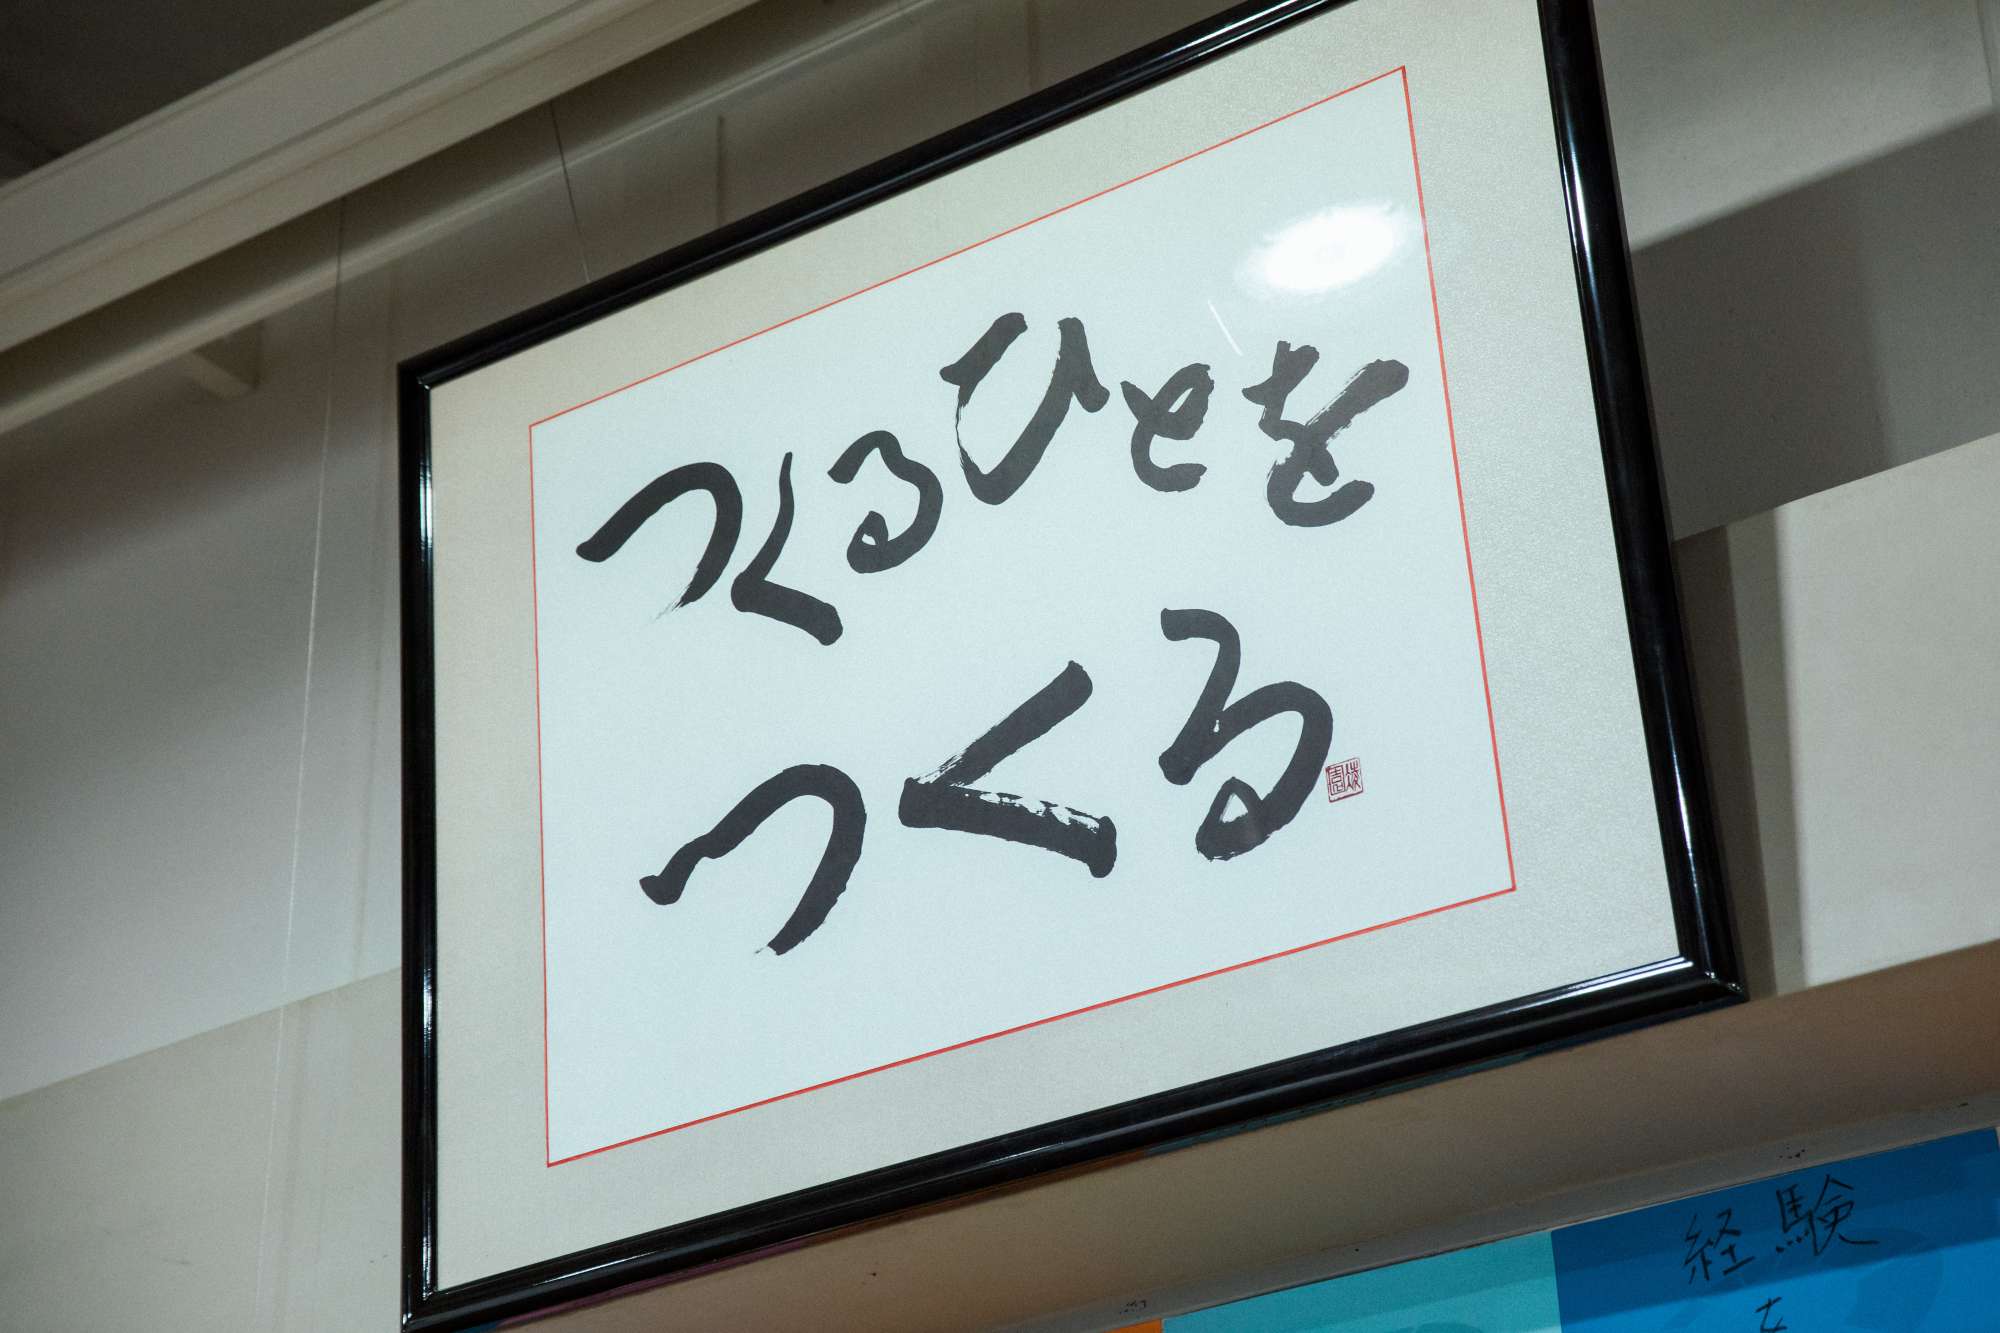 つくるひとを
つくる
経験